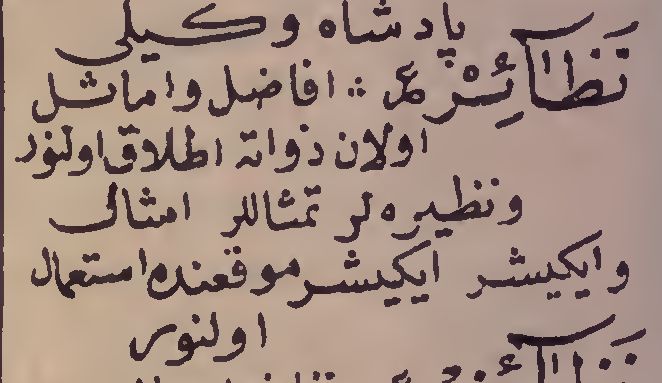 پادشاه وكيلى
نَظَاآئِرْ ع :: افاضل واماثل
اولان ذواته اطلاق اولنور
ونظيره لر تمثاللر امثالى
وايكيشر ايكيشر موقعنده استعمال
اولنور